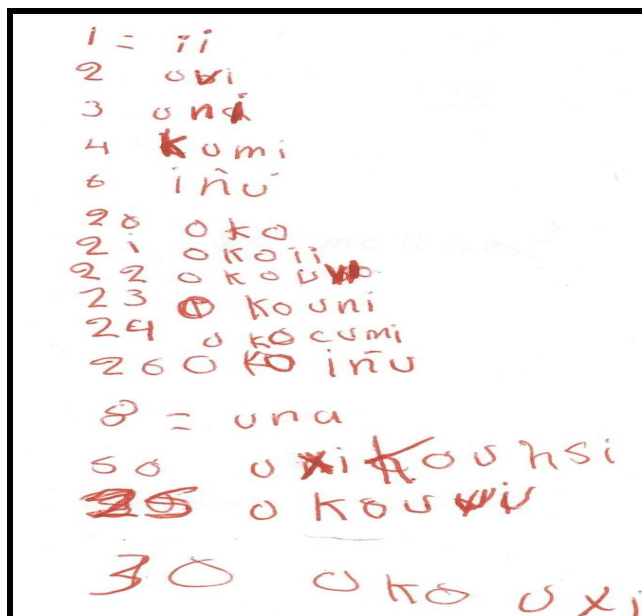 1 = ii
2 uvi
3 uni
4 Kumi
6 iñu
20 oko
21 okoii
22 okou
23 o kouni
24 o kocumi
26 oko iñu
8 = una
50 uxi
o kou
30 oko uxi